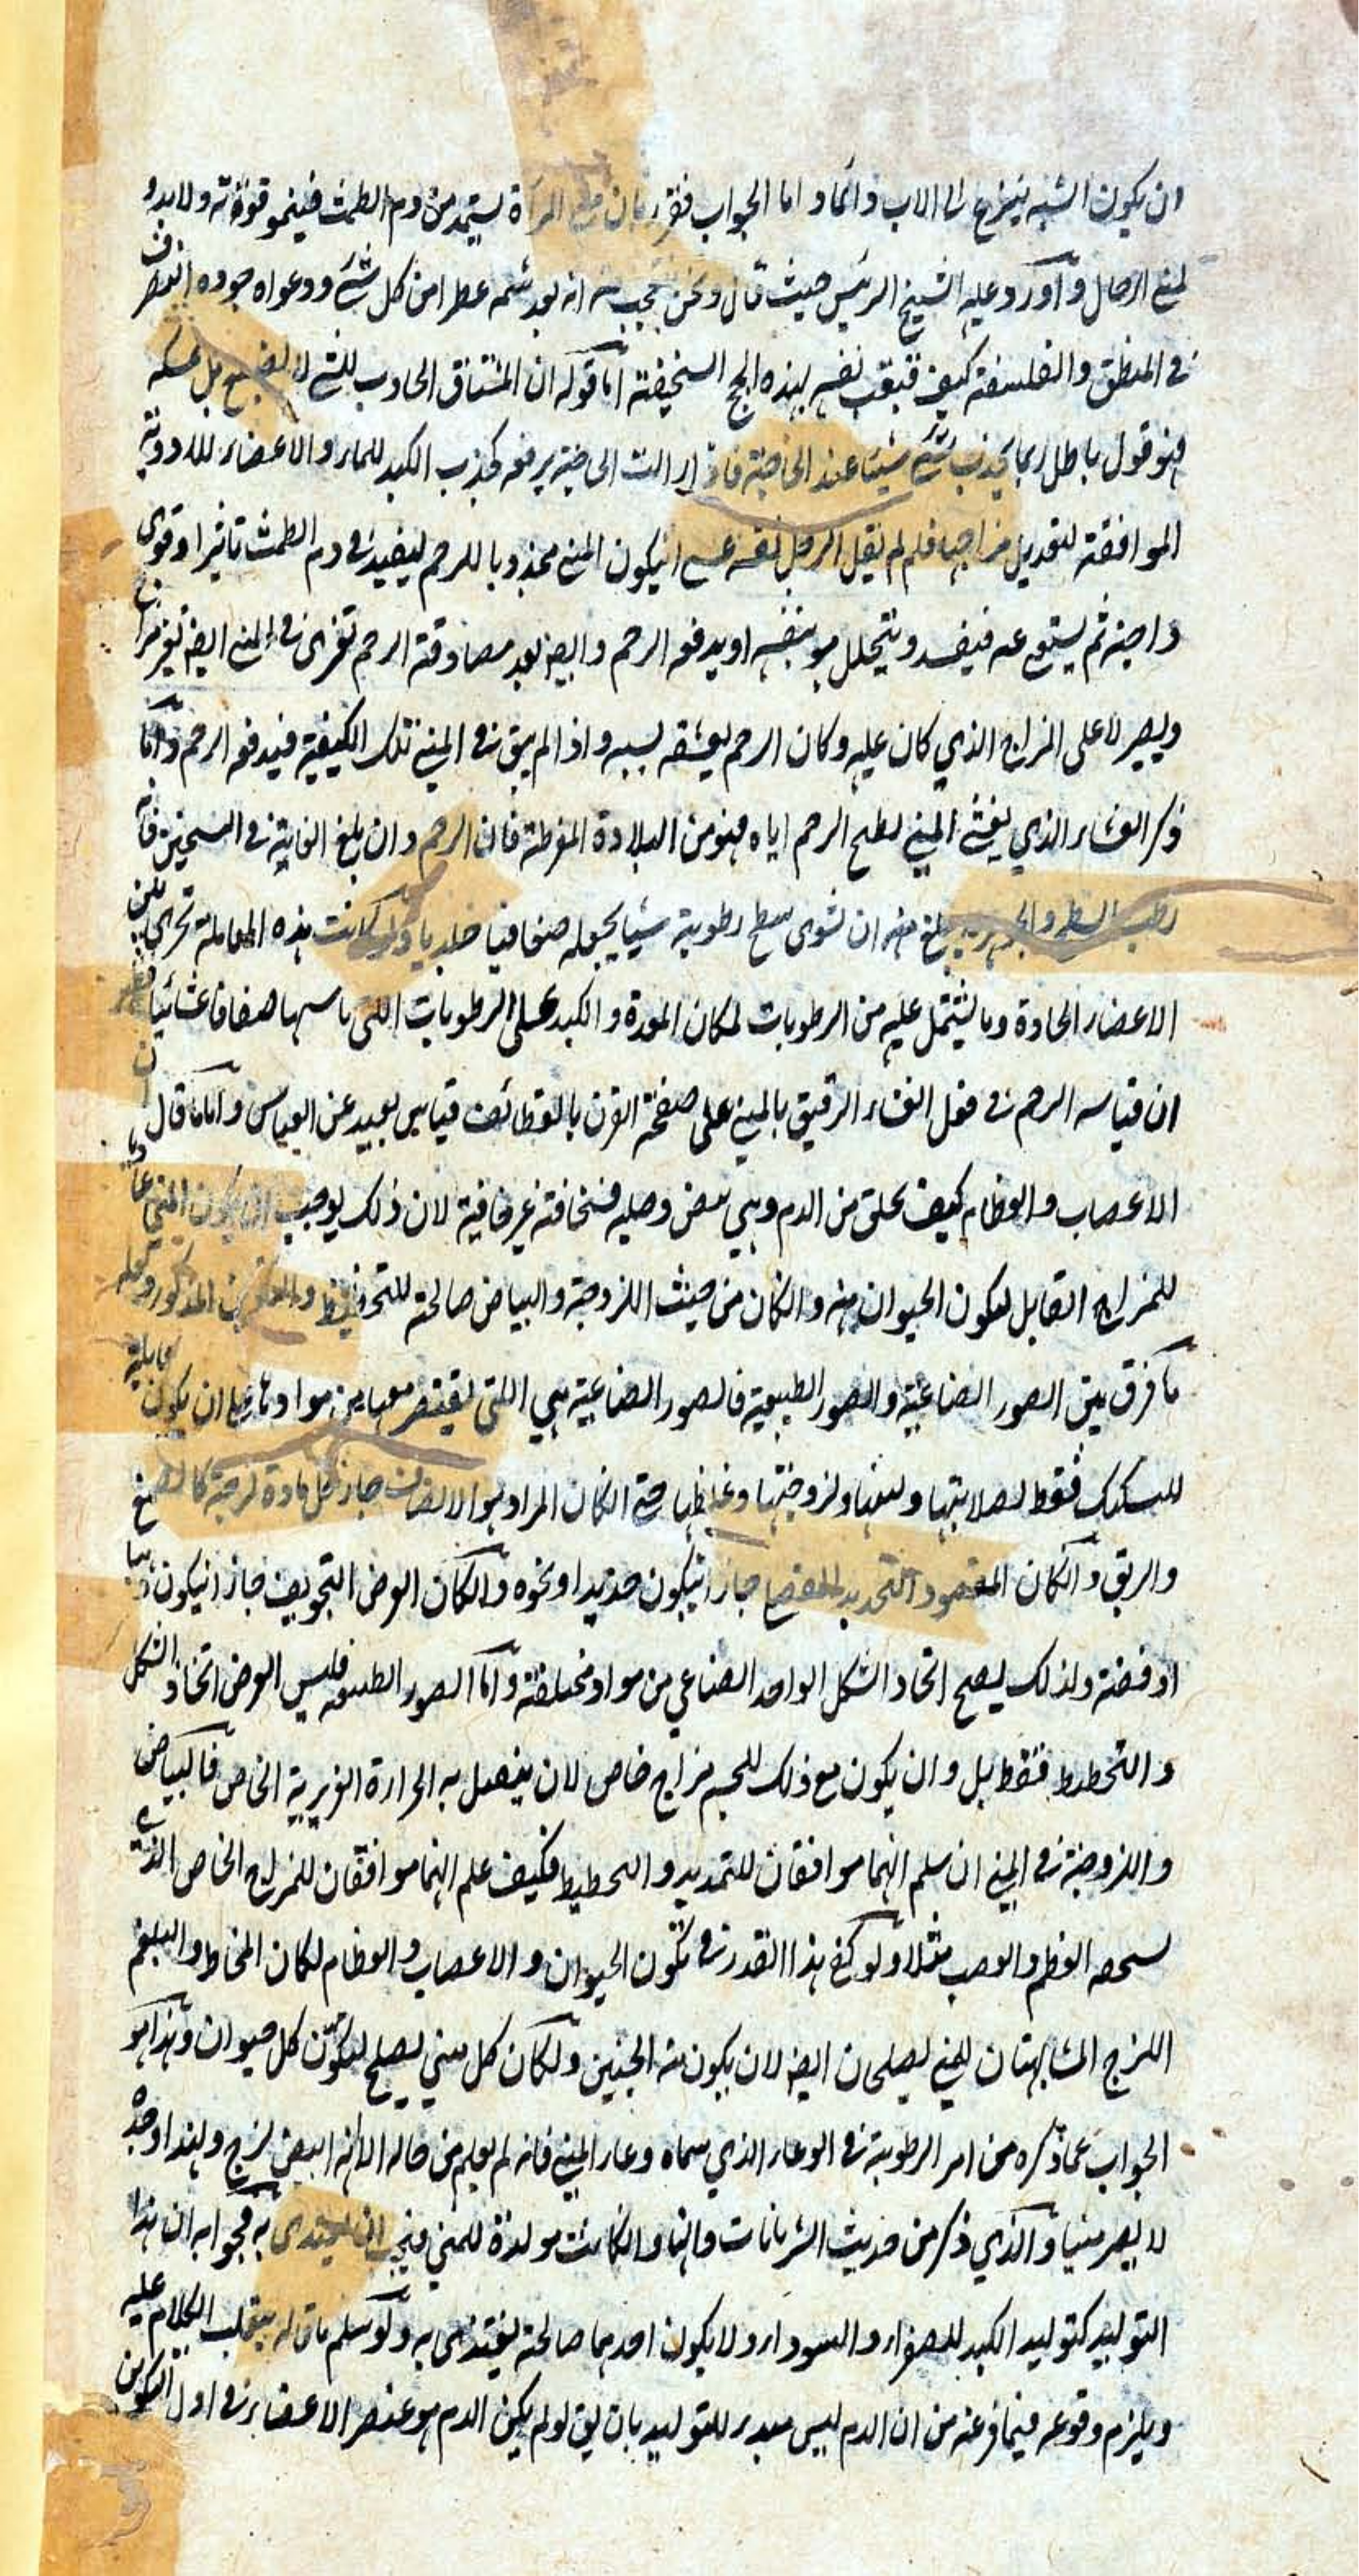 ان يكون الشبه ينزع الى الاب دائما و اما الجواب فقرر بان مني المرأة يستمد من دم الطمث فينمو قوته ولا بدو
لمني الرجال و اورد عليه الشيخ الرئيس حيث قال و نحن نتعجب منه انه بعد شمه عطرا من كل شئ و دعواه جوده التصرف
في المنطق والفلسفة كيف قنعت نفسه بهذه الحجج السخيفة اما قوله ان المشتاق الجاذب للشئ لا يضيع بل يمسكه
فهو قول باطل ربما يجذب شئ شيئا عند الحاجة فاذا زالت الحاجة يرفعه كجذب الكبد للماء و الاعضاء للادوية
الموافقة لتعديل مزاجها فلم لم يقل الرجل لنفسه عسى ان يكون المني مجذوبا للرحم ليفيد في دم الطمث تاثيرا و قوى
واحينه ثم يستغنى عنه فيفسد و يتحلل هو بنفسه او يدفعه الرحم و ايضا بعد مصادقة الرحم تغرى في المني ايضا تغير مزاج
ويصير لا على المزاج الذي كان عليه وكان الرحم يعشقه بسببه و اذا لم يبق في المني تلك الكيفية فيدفعه الرحم و اما
ذكر الغشاء الذي يغشى المني لطبخ الرحم اياه فهو من البلادة المفرطة فان الرحم و ان بلغ الغاية في التسخين فانه
رطب السطح و الجوهر يبلغ منه ان تشوى سطح رطوبة شيا يجعله صفاقيا جلديا و لو كانت هذه المعاملة تجري بين
الاعضاء الحادة وما يشتمل عليه من الرطوبات لكان المعدة و الكبد على الرطوبات التي تماسها صفاقا غشائيا فظهر
ان قياسه الرحم في فعل الغشاء الرقيق بالمني على صفحة الفرن بالقطائف قياس بعيد عن القياس و اما ما قال ان
الاعصاب و العظام كيف تخلق من الدم وهي بيض وصلبه فسخافته غير خافية لان ذلك يوجب ان يكون المني عادما
للمزاج القابل لتكون الحيوان منه و ان كان من حيث اللزوجة و البياض صالحة للتخطيط و التكوين المذكور و كم
ما فرق بين الصور الصناعية و الصور الطبيعية فالصور الصناعية هي التي يقتصر معها من موادها على ان يكون قابلة
للسكك فقط لصلابتها و لينها و لزوجتها و غلظها حتى ان كان المراد هو الالصاق جاز كل مادة لزجة كالصمغ
والريق و ان كان المقصود التحديد للقطع جاز ان يكون حديدا او نحوه و ان كان الغرض التجويف جاز ان يكون ذهبا
او فضة ولذلك يصح اتحاد الشكل الواحد الصناعي من مواد مختلفة و اما الصور الطبيعيه فليس الغرض اتخاذ الشكل
و التخطيط فقط بل و ان يكون مع ذلك للجسم مزاج خاص لان ينفعل به الحرارة الغريزية الخاص فالبياض
و اللزوجة في المني ان سلم انهما موافقان للتمديد و التخطيط فكيف علم انهما موافقان للمزاج الخاص الذي
يستحقه العظم و العصب مثلا ولو كفى هذا القدر في تكون الحيوان و الاعصاب و العظام لكان المخاط و البلغم
اللزج المشابهتان للمني يصلحان ايضا لان يكون منه الجنين و لكان كل مني يصلح لتكون كل حيوان و هذا هو
الجواب عما ذكره من امر الرطوبة في الوعاء الذي سماه وعاء المني فانه لم يعلم من حاله الا انه ابيض لزج و لهذا وحده
لا يصير منيا و الذي ذكر من حديث الشريانات و انها و ان كانت مولدة للمني فيجب ان يغتذى به فجوابه ان هذا
التوليد كتوليد الكبد للصفراء و السوداء و لا يكون احدهما صالحة يغتذى به و لو سلم ما قاله ينقلب الكلام عليه
ويلزم وقوعه فيما فر عنه من ان الدم ليس مبدء للتوليد بان يق لو لم يكن الدم هو عنصر الاعضاء في اول التكون